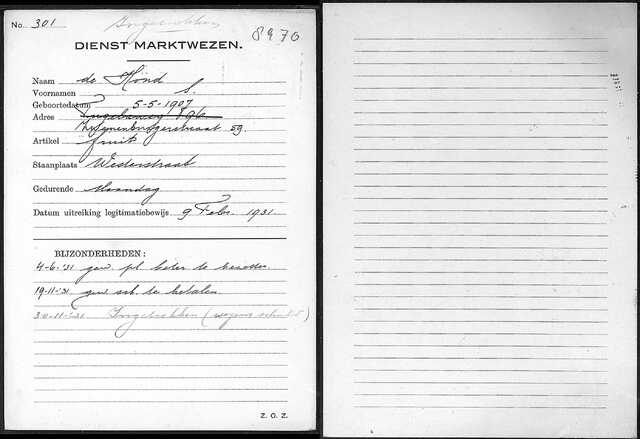 No. 301 Ingetrokken 8970
DIENST MARKTWEZEN.
Naam de Hond
Voornamen S.
Geboortedatum 5-5-1907
Adres 196
59
Artikel fruit
Staanplaats Westerstraat
Gedurende Maandag
Datum uitreiking legitimatiebewijs 9 Febr. 1931.
BIJZONDERHEDEN:
4-6-'31 gew. pl. beter te bezetten.
19-11-'31 gew. sch. te betalen.
30-11-'31 Ingetrokken (wegens schuld)
Z. O. Z.